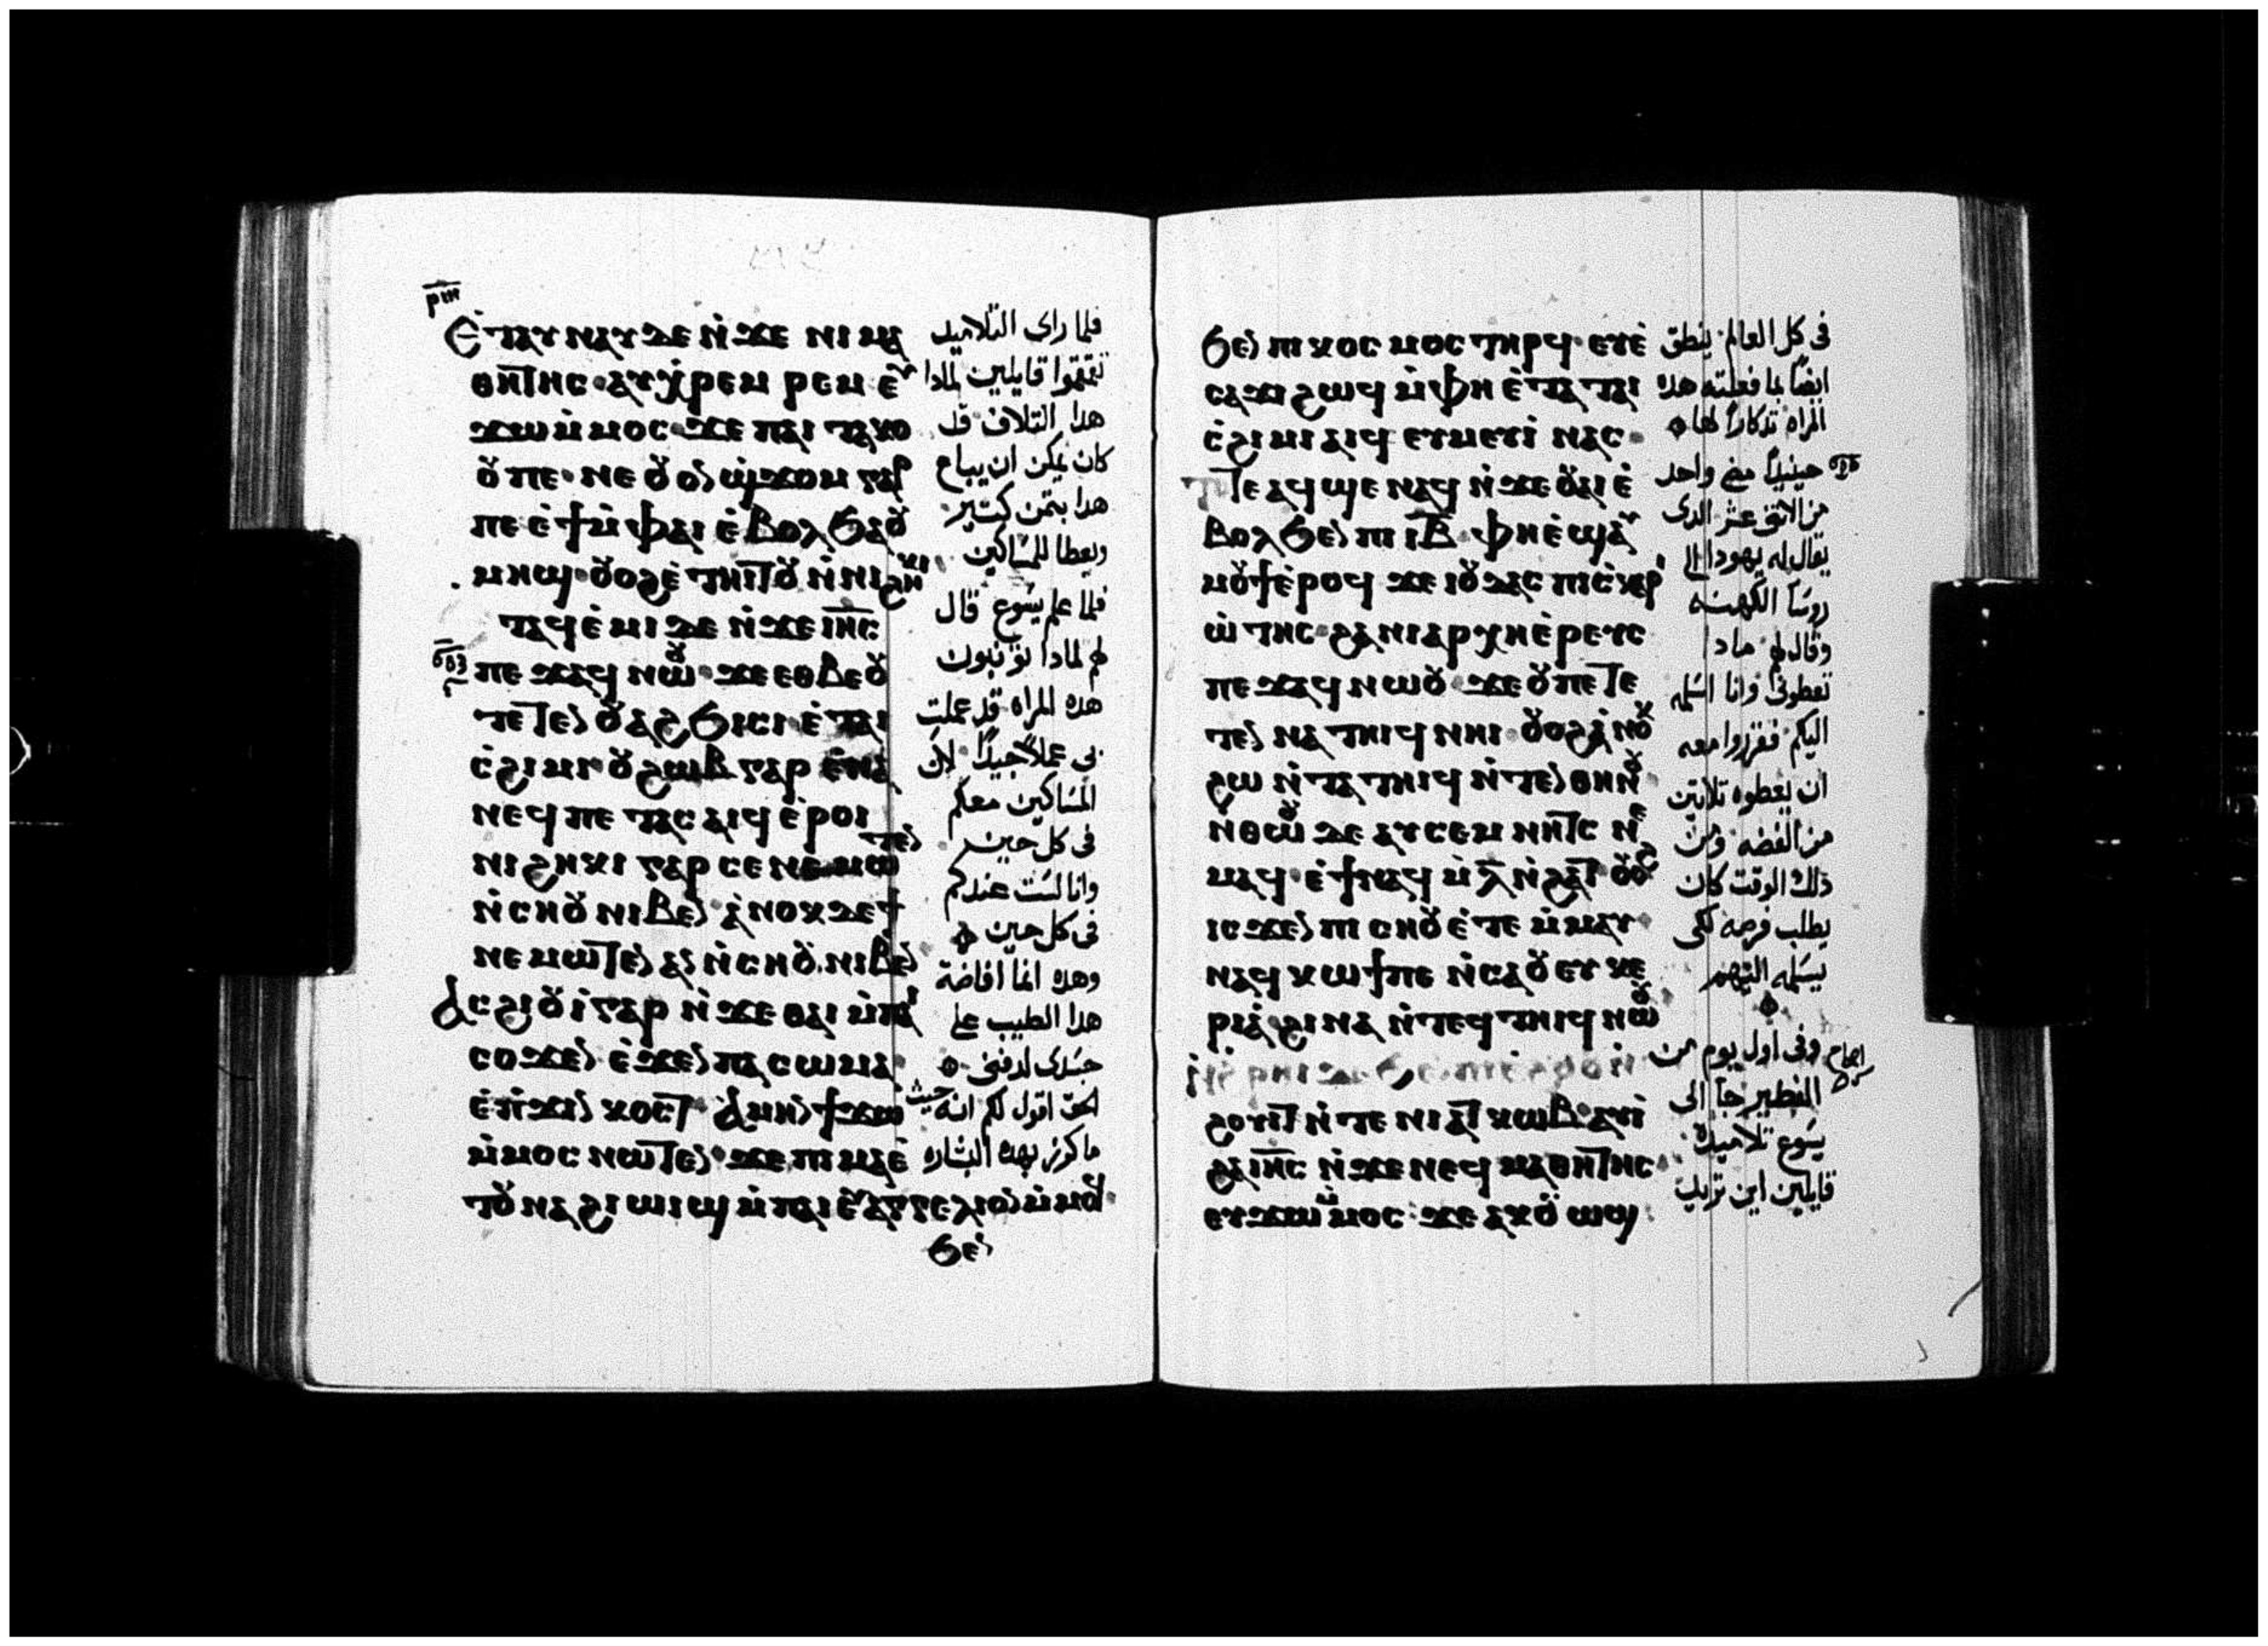 ⲣⲓⲏ
Ⲉ̀ⲧⲁⲩⲛⲁⲩ ⲇⲉ ⲛ̀ϫⲉ ⲛⲓⲙⲁ
ⲑⲏⲧⲏⲥ ⲁⲩⲭ̀ⲣⲉⲙⲣⲉⲙ ⲉⲩ
ϫⲱ ⲙ̀ⲙⲟⲥ ϫⲉ ⲡⲁⲓⲧⲁⲕⲟ
ⲟⲩ ⲡⲉ ⲛⲉ ⲟⲩⲟⲛ ϣ̀ϫⲟⲙ ⲅⲁⲣ
ⲡⲉ ⲉ̀ϯ ⲙ̀ⲫⲁⲓ ⲉ̀ⲃⲟⲗ ϧⲁ ⲟⲩ
ⲙⲏϣ ⲟⲩⲟϩ ⲉ̀ⲧⲏⲓⲧⲟⲩ ⲛ̀ⲛⲓϩⲏⲕⲓ
ⲧⲁϥⲉ̀ⲙⲓ ⲇⲉ ⲛ̀ϫⲉ ⲓⲏⲥ
ⲡⲉϫⲁϥ ⲛⲱⲟⲩ ϫⲉ ⲉⲑⲃⲉⲟⲩ
ⲧⲉⲧⲉⲛⲟⲩⲁϩϧⲓⲥⲓ ⲉ̀ⲧⲁⲓ
ⲥ̀ϩⲓⲙⲓ ⲟⲩϩⲱⲃ ⲅⲁⲣ ⲉ̀ⲛⲁ
ⲛⲉϥ ⲡⲉⲧⲁⲥⲁⲓϥ ⲉ̀ⲣⲟⲓ
ⲛⲓϩⲏⲕⲓ ⲅⲁⲣ ⲥⲉⲛⲉⲙⲱⲧⲉⲛ
ⲛ̀ⲥⲏⲟⲩ ⲛⲓⲃⲉⲛ ⲁ̀ⲛⲟⲕ ⲇⲉ ϯ
ⲛⲉⲙⲱⲧⲉⲛ ⲁⲛ ⲛ̀ⲥⲏⲟⲩ ⲛⲓⲃⲉⲛ
Ⲁⲥϩⲓⲟⲩⲓ̀ ⲅⲁⲣ ⲛ̀ϫⲉ ⲑⲁⲓ ⲙ̀ⲡⲁⲓ
ⲥⲟϫⲉⲛ ⲉ̀ϫⲉⲛ ⲡⲁⲥⲱⲙⲁ
ⲉ̀ⲡ̀ϫⲓⲛⲕⲟⲥⲧ Ⲁⲙⲏⲛ ϯϫⲱ
ⲙ̀ⲙⲟⲥ ⲛⲱⲧⲉⲛ ϫⲉ ⲡⲓⲙⲁ ⲉ̀
ⲧⲟⲩⲛⲁϩⲓⲱⲓϣ ⲙ̀ⲡⲁⲓⲉⲩⲁⲅⲅⲉⲗⲓⲟⲛ ⲙ̀ⲙⲟϥ
ϧⲉⲛ
فلما راى التلاميد
تقمقموا قايلين لمادا
هدا التلاف قد
كان يمكن ان يباع
هدا بتمن كتير
ويعطا للمساكين
فلما علم يسوع قال
لهم لمادا تونبون
هده المراه قد عملت
بى عملا جيدا لان
المساكين معكم
فى كل حين
وانا لست عندكم
فى كل حين
وهده انما افاضة
هدا الطيب على
جسدى لدفنى
الحق اقول لكم انه حيث
ما كرز بهده البشاره
ϧⲉⲛ ⲡⲓⲕⲟⲥⲙⲟⲥ ⲧⲏⲣϥ ⲉⲩⲉ̀
ⲥⲁϫⲓ ϩⲱϥ ⲙ̀ⲫⲏ ⲉ̀ⲧⲁ ⲧⲁⲓ
ⲥ̀ϩⲓⲙⲓ ⲁⲓϥ ⲉⲩⲙⲉⲩⲓ̀ ⲛⲁⲥ
ⲧⲧⲉ ⲁϥϣⲉ ⲛⲁϥ ⲛ̀ϫⲉ ⲟⲩⲁⲓ ⲉ̀
ⲃⲟⲗ ϧⲉⲛ ⲡⲓⲓⲃ ⲫⲏ ⲉ̀ϣⲁⲩ
ⲙⲟⲩϯ ⲉ̀ⲣⲟϥ ϫⲉ ⲓⲟⲩⲇⲁⲥ ⲡⲓⲥ̀ⲕⲁⲣⲓ
ⲱ̀ⲧⲏⲥ ϩⲁ ⲛⲓⲁⲣⲭⲏⲉ̀ⲣⲉⲩⲥ
ⲡⲉϫⲁϥ ⲛⲱⲟⲩ ϫⲉ ⲟⲩ ⲡⲉⲧⲉ
ⲧⲉⲛⲛⲁⲧⲏⲓϥ ⲛⲏⲓ ⲟⲩⲟϩ ⲁ̀ⲛⲟⲕ
ϩⲱ ⲛ̀ⲧⲁⲧⲏⲓϥ ⲛ̀ⲧⲉⲛⲑⲏⲛⲟⲩ
ⲛ̀ⲑⲱⲟⲩ ⲇⲉ ⲁⲩⲥⲉⲙⲛⲏⲧⲥ ⲛⲉ
ⲙⲁϥ ⲉ̀ϯ ⲛⲁϥ ⲙ̀ⲗ ⲛ̀ϩⲁⲧ ⲟⲩⲟϩ
ⲓⲥϫⲉⲛ ⲡⲓⲥⲏⲟⲩ ⲉ̀ⲧⲉⲙ̀ⲙⲁⲩ
ⲛⲁϥⲕⲱϯ ⲡⲉ ⲛ̀ⲥⲁ ⲟⲩⲉⲩⲕⲉ
ⲣⲓⲁ̀ ϩⲓⲛⲁ ⲛ̀ⲧⲉϥⲧⲏⲓϥ ⲛⲱⲟⲩ
ϩⲟⲩⲓⲧ ⲛ̀ⲧⲉ ⲛⲓⲁⲧⲕⲱⲃ ⲁⲩⲓ̀
ϩⲁ ⲓⲏⲥ ⲛ̀ϫⲉ ⲛⲉϥⲙⲁⲑⲏⲧⲏⲥ
ⲉⲩϫⲱ ⲙ̀ⲙⲟⲥ ϫⲉ ⲁⲕⲟⲩⲱϣ
فى كل العالم ينطق
ايضا بما فعلته هده
المراه تدكارا لها
حينيدا مضى واحد
من الاتنى عشر الدى
يقال له يهودا الى
روسا الكهنه
وقال لهم مادا
تعطونى وانا اسلمه
اليكم فقرروا معه
ان يعطوه تلاتين
من الفضه ومن
دلك الوقت كان
يطلب فرصه لكى
يسلمه اليهم
وفى اول يوم من
الفطير جا الى
يسوع تلاميده
قايلين اين تريد